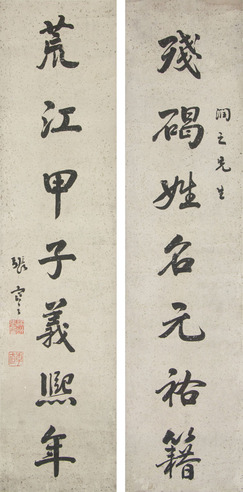 殘碣姓名元祐籍
澗之先生
荒江甲子義熙年
張謇